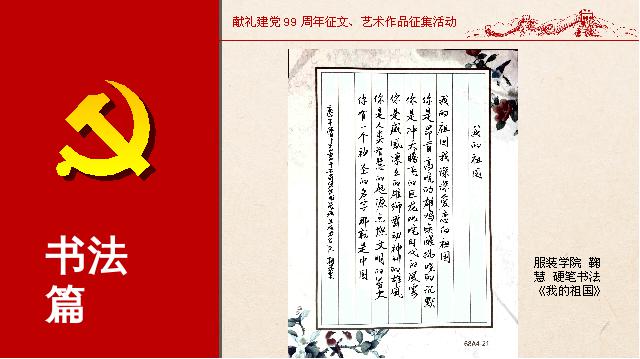 献礼建党 99 周年征文、艺术作品征集活动
书法
篇
我的祖国
我的祖国我深深爱恋的祖国
你是昂首高吭的雄鸡唤醒拂晓的沉默
你是冲天腾飞的巨龙叱咤时代的风云
你是威风凛凛的雄狮舞动神州的雄风
你是人类智慧的起源点燃文明的星火
你有一个神圣的名字那就是中国
68A4-21
服装学院 鞠
慧 硬笔书法
《我的祖国》